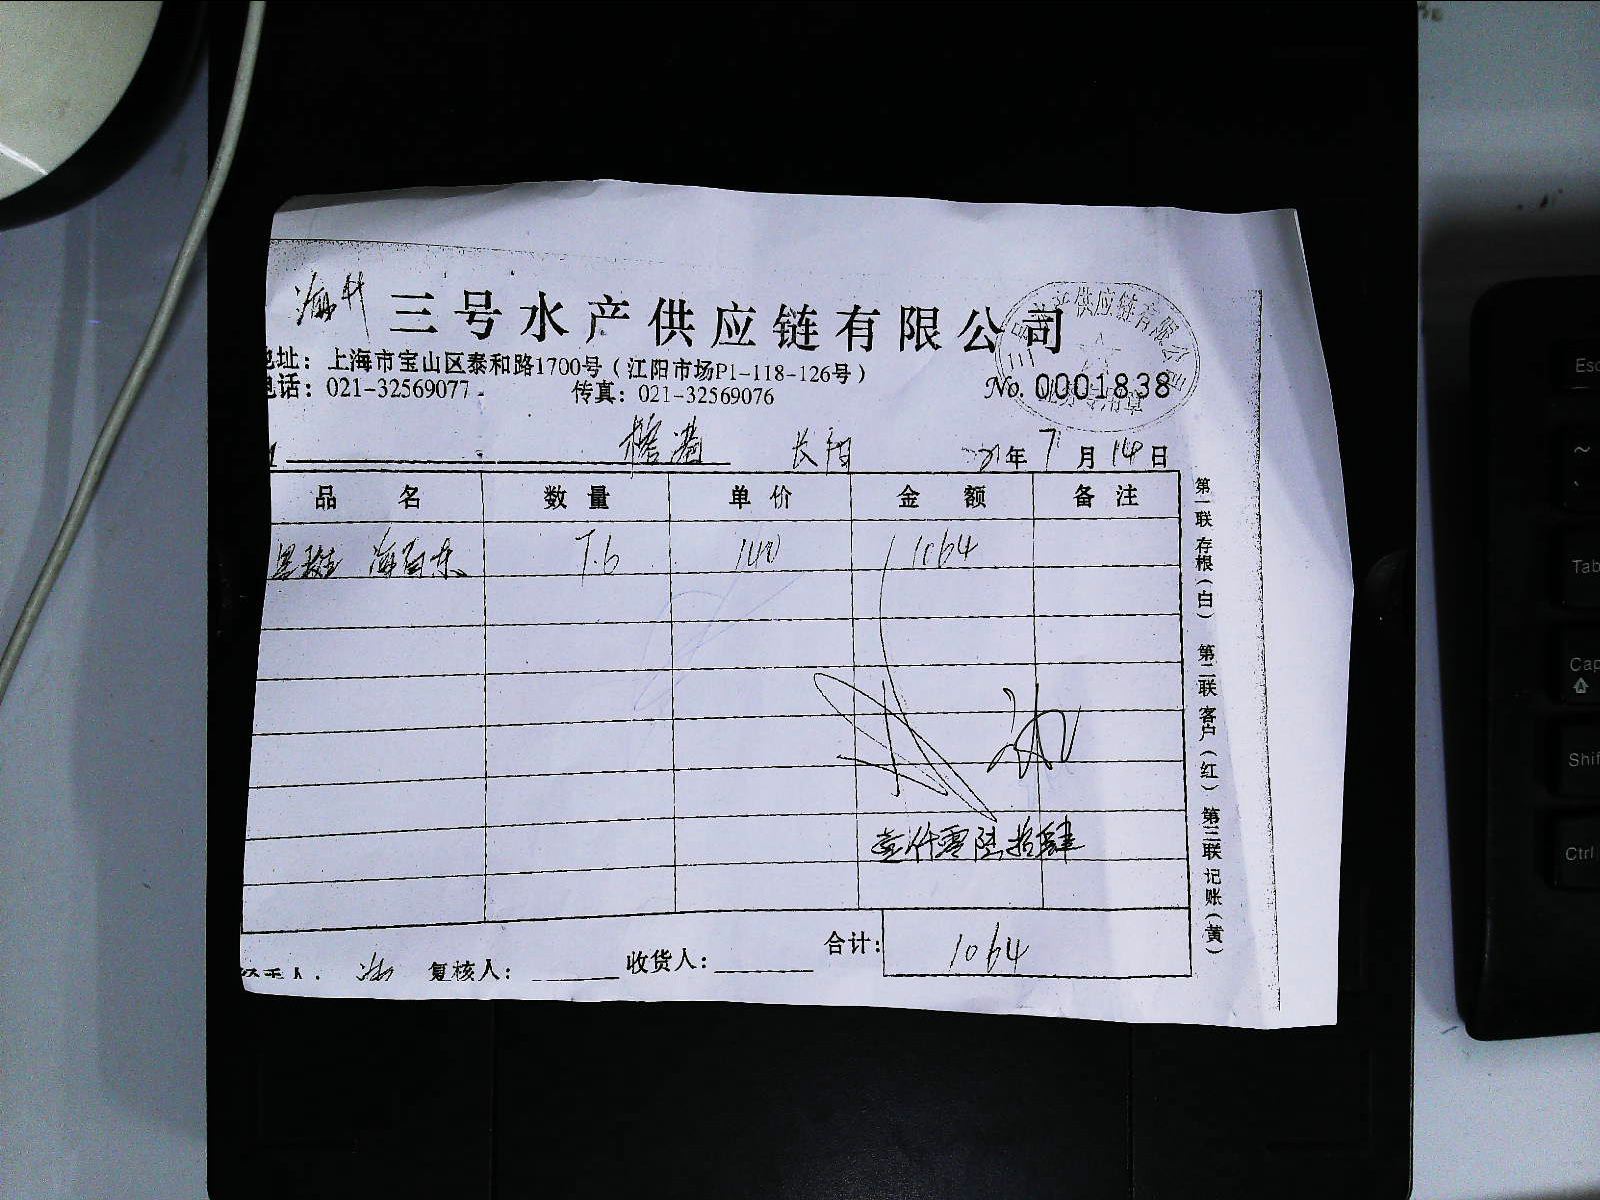 三号水产供应链有限公司
地址：上海市宝山区泰和路1700号（江阳市场P1-118-126号）
电话：021-32569077 传真：021-32569076
No. 0001838
水产供应链有限公司
业务专用章
21年7月14日
品名 数量 单价 金额 备注
7.6 140 1064
壹仟零陆拾肆
合计：1064
经手人： 复核人： 收货人：
第一联 存根（白） 第二联 客户（红） 第三联 记账（黄）
Esc
~
Tab
Cap
Shif
Ctrl